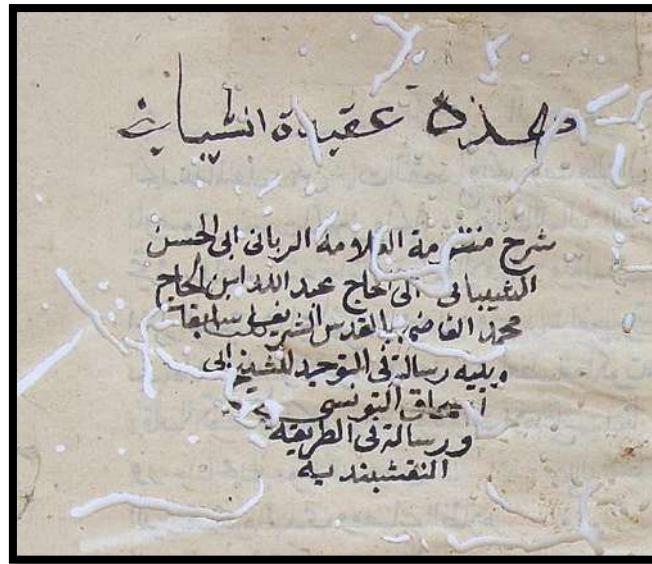 هذه عقيدة الشيباني
شرح منظومة العلامة الرباني ابى الحسن
الشيبانى الى الحاج عبد الله ابن الحاج
محمد القاضى بالقدس الشريف سابقا
ويليه رسالة فى التوحيد للشيخ ابى
اسحاق التونسى
ورسالة فى الطريقه
النقشبنديه